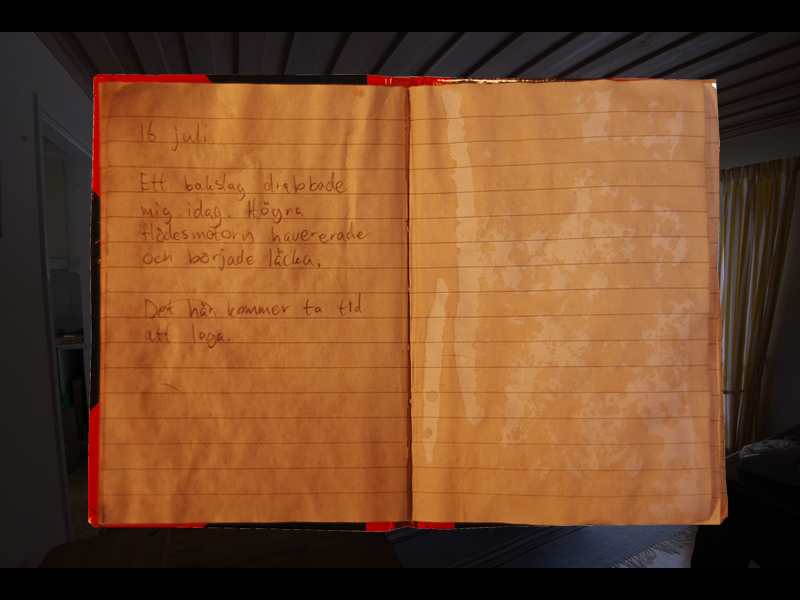 16 juli
Ett bakslag drabbade
mig idag. Högra
flödesmotorn havererade
och började läcka.
Det här kommer ta tid
att laga.